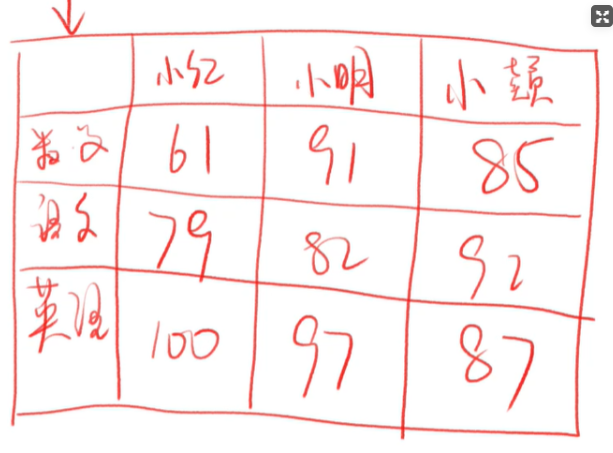 小红 小明 小颖
数文 61 91 85
语文 79 82 92
英语 100 97 87